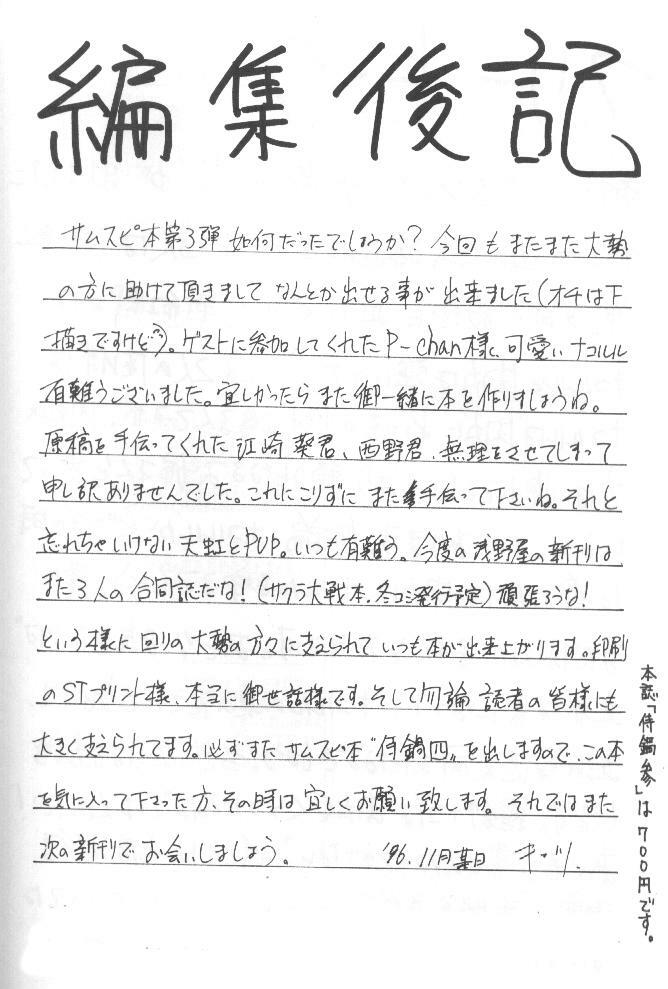 編集後記
サムスピ本第3弾 如何だったでしょうか? 今回もまたまた大勢
の方に助けて頂きまして なんとか出せる事が出来ました(オチは下
描きですけど)。ゲストに参加してくれた P-chan様、可愛いナコルル
有難うございました。宜しかったらまた御一緒に本を作りましょうね。
原稿を手伝ってくれた 江崎葵君、西野君、無理をさせてしまって
申し訳ありませんでした。これにこりずに また手伝って下さいね。それと
忘れちゃいけない 天虹とPUP。いつも有難う。今度の浅野屋の新刊は
また3人の合同誌だな!(サクラ大戦本.冬コミ発行予定)頑張ろうな!
という様に 回りの大勢の方々に支えられて いつも本が出来上がります。印刷
のSTプリント様、本当に御世話様です。そして勿論 読者の皆様にも
大きく支えられてます。必ずまた サムスピ本〝侍鍋四〟を出しますので、この本
を気に入って下さった方、その時は宜しくお願い致します。それではまた
次の新刊で お会いしましょう。 '96.11月某日 キッツ.
本誌「侍鍋参」は700円です。